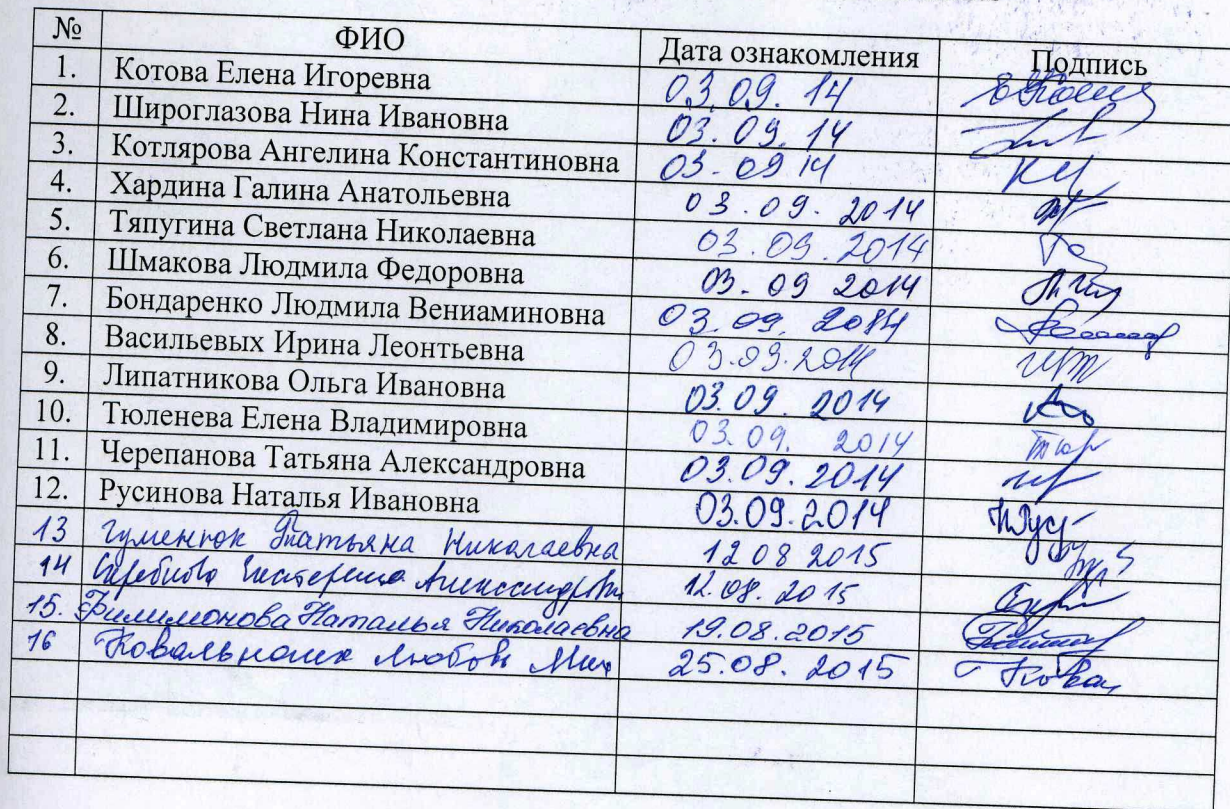 № ФИО Дата ознакомления Подпись
1. Котова Елена Игоревна 03.09.14
2. Широглазова Нина Ивановна 03.09.14
3. Котлярова Ангелина Константиновна 03.09 14
4. Хардина Галина Анатольевна 03.09.2014
5. Тяпугина Светлана Николаевна 03.09.2014
6. Шмакова Людмила Федоровна 03.09 2014
7. Бондаренко Людмила Вениаминовна 03.09.2014
8. Васильевых Ирина Леонтьевна 03.09.2014
9. Липатникова Ольга Ивановна 03.09.2014
10. Тюленева Елена Владимировна 03.09.2014
11. Черепанова Татьяна Александровна 03.09.2014
12. Русинова Наталья Ивановна 03.09.2014
13 Гуменюк Татьяна Николаевна 12 08 2015
14 Екатерина 12.08.2015
15. Филимонова Наталья Николаевна 19.08.2015
16 Любовь 25.08.2015